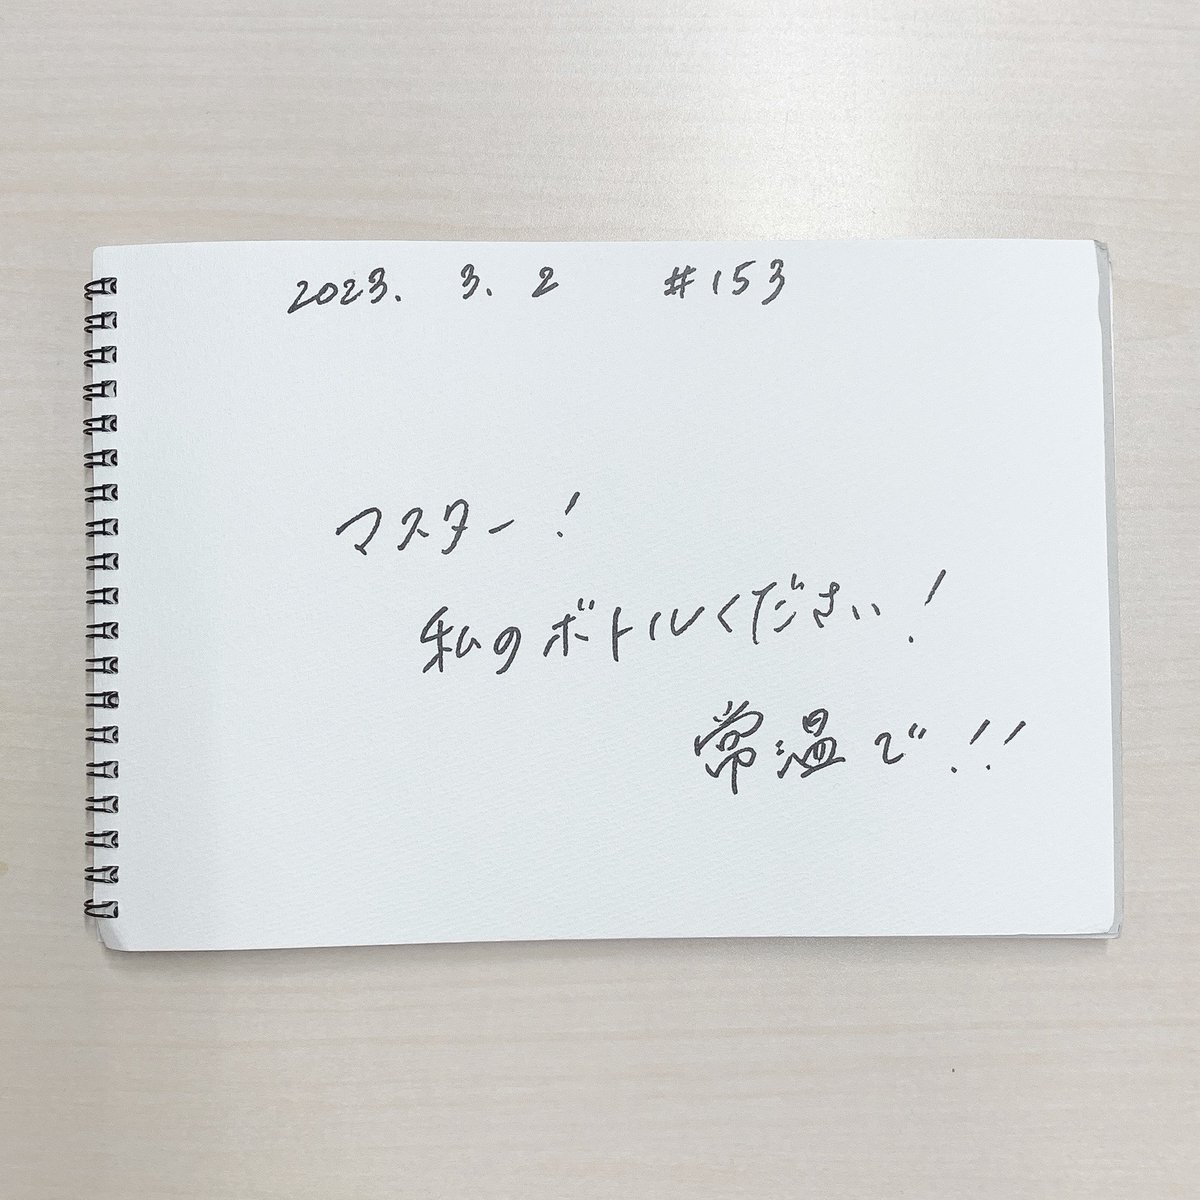 2023. 3. 2 #153
マスター!
私のボトルください!
常温で!!